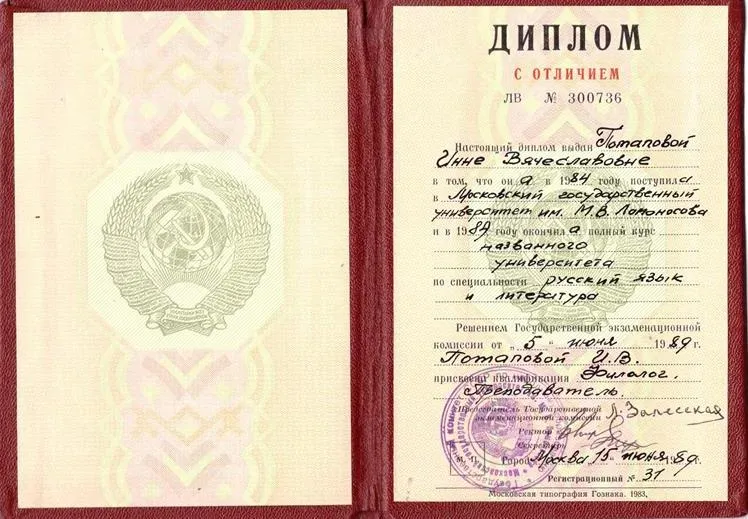 ДИПЛОМ
С ОТЛИЧИЕМ
ЛВ № 300736
Настоящий диплом выдан Потаповой
Инне Вячеславовне
в том, что он а в 1984 году поступила
в Московский государственный
университет им. М.В. Ломоносова
и в 1989 году окончил а полный курс
названного
университета
по специальности русский язык
и литература
Решением Государственной экзаменационной
комиссии от „ 5 “ июня 1989 г.
Потаповой И.В.
присвоена квалификация Филолог.
Преподаватель.
Председатель Государственной
экзаменационной комиссии
Ректор
Секретарь
Город Москва 15 июня 1989.
Регистрационный № 31
Московская типография Гознака. 1983.